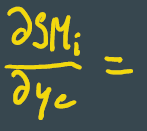 ∂SMᵢ
∂y_c =